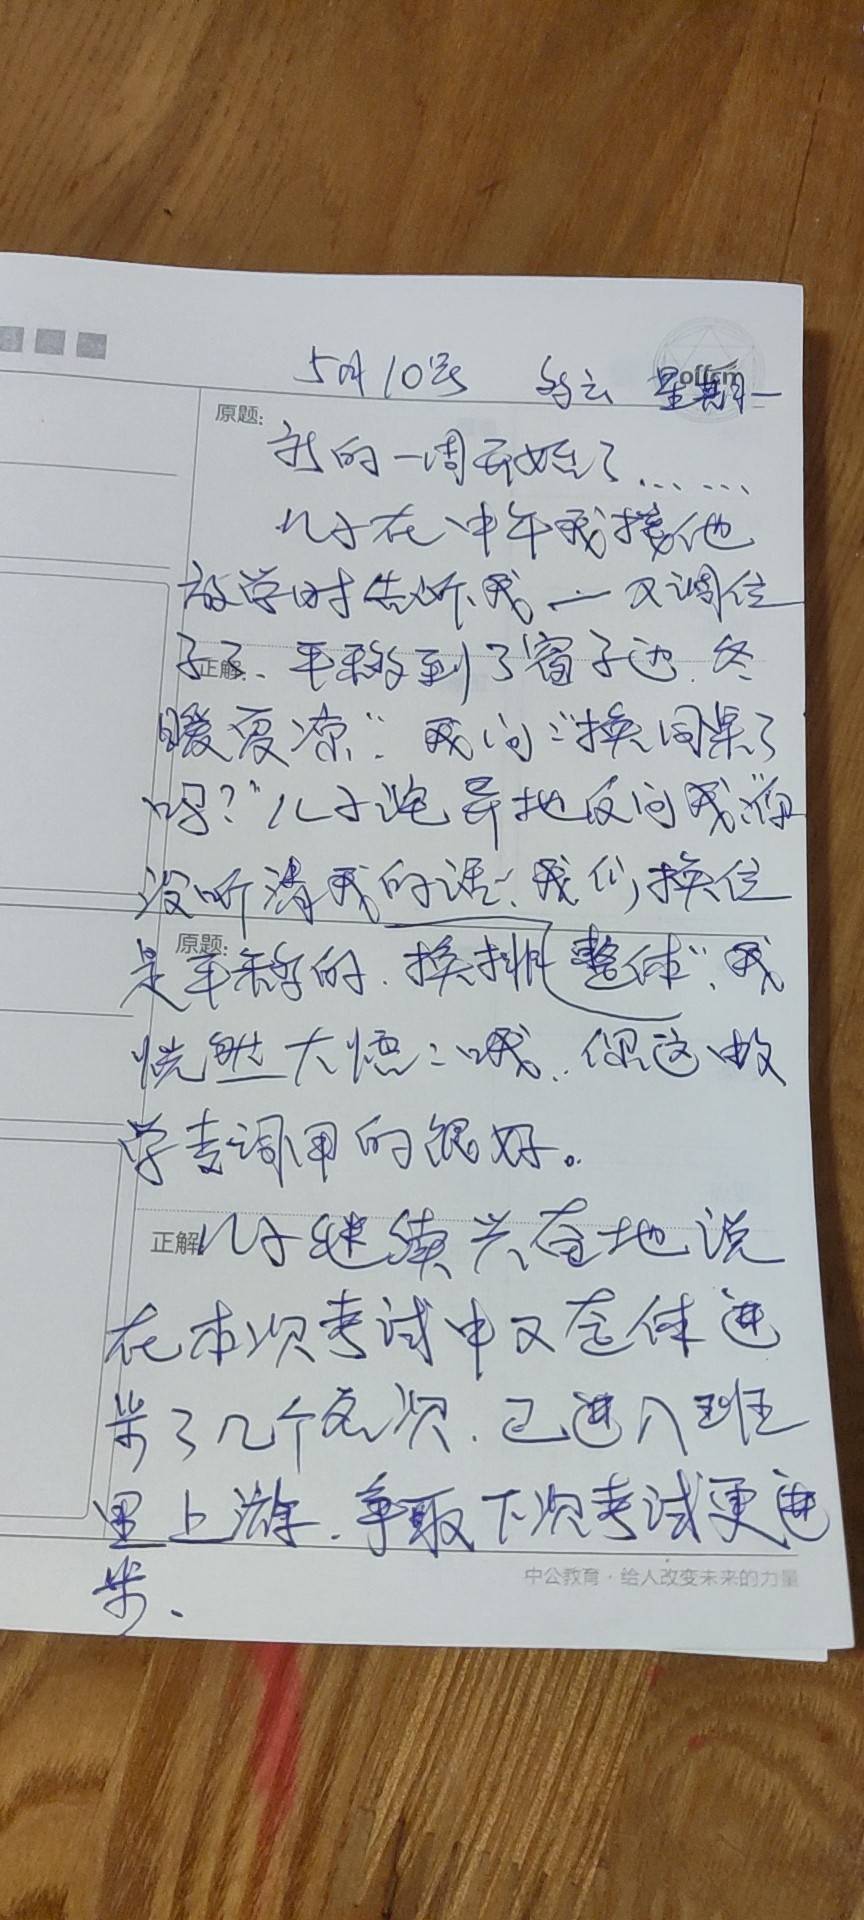 5月10号 多云 星期一
offcn
原题:
我的一周开始了……
儿子在中午我接他
放学时告诉我一又调位
子了、平移到了窗子边.冬
正解:
暖夏凉".我问:"换同桌了
吗?"儿子诧异地反问我"你
没听清我的话:我们换位
原题:
是平移的.换排整体".我
恍然大悟:哦..你这数
学专词用的很好。
正解
儿子继续兴奋地说
在本次考试中又整体进
步了几个名次.已进入班
里上游.争取下次考试更进
中公教育·给人改变未来的力量
步.